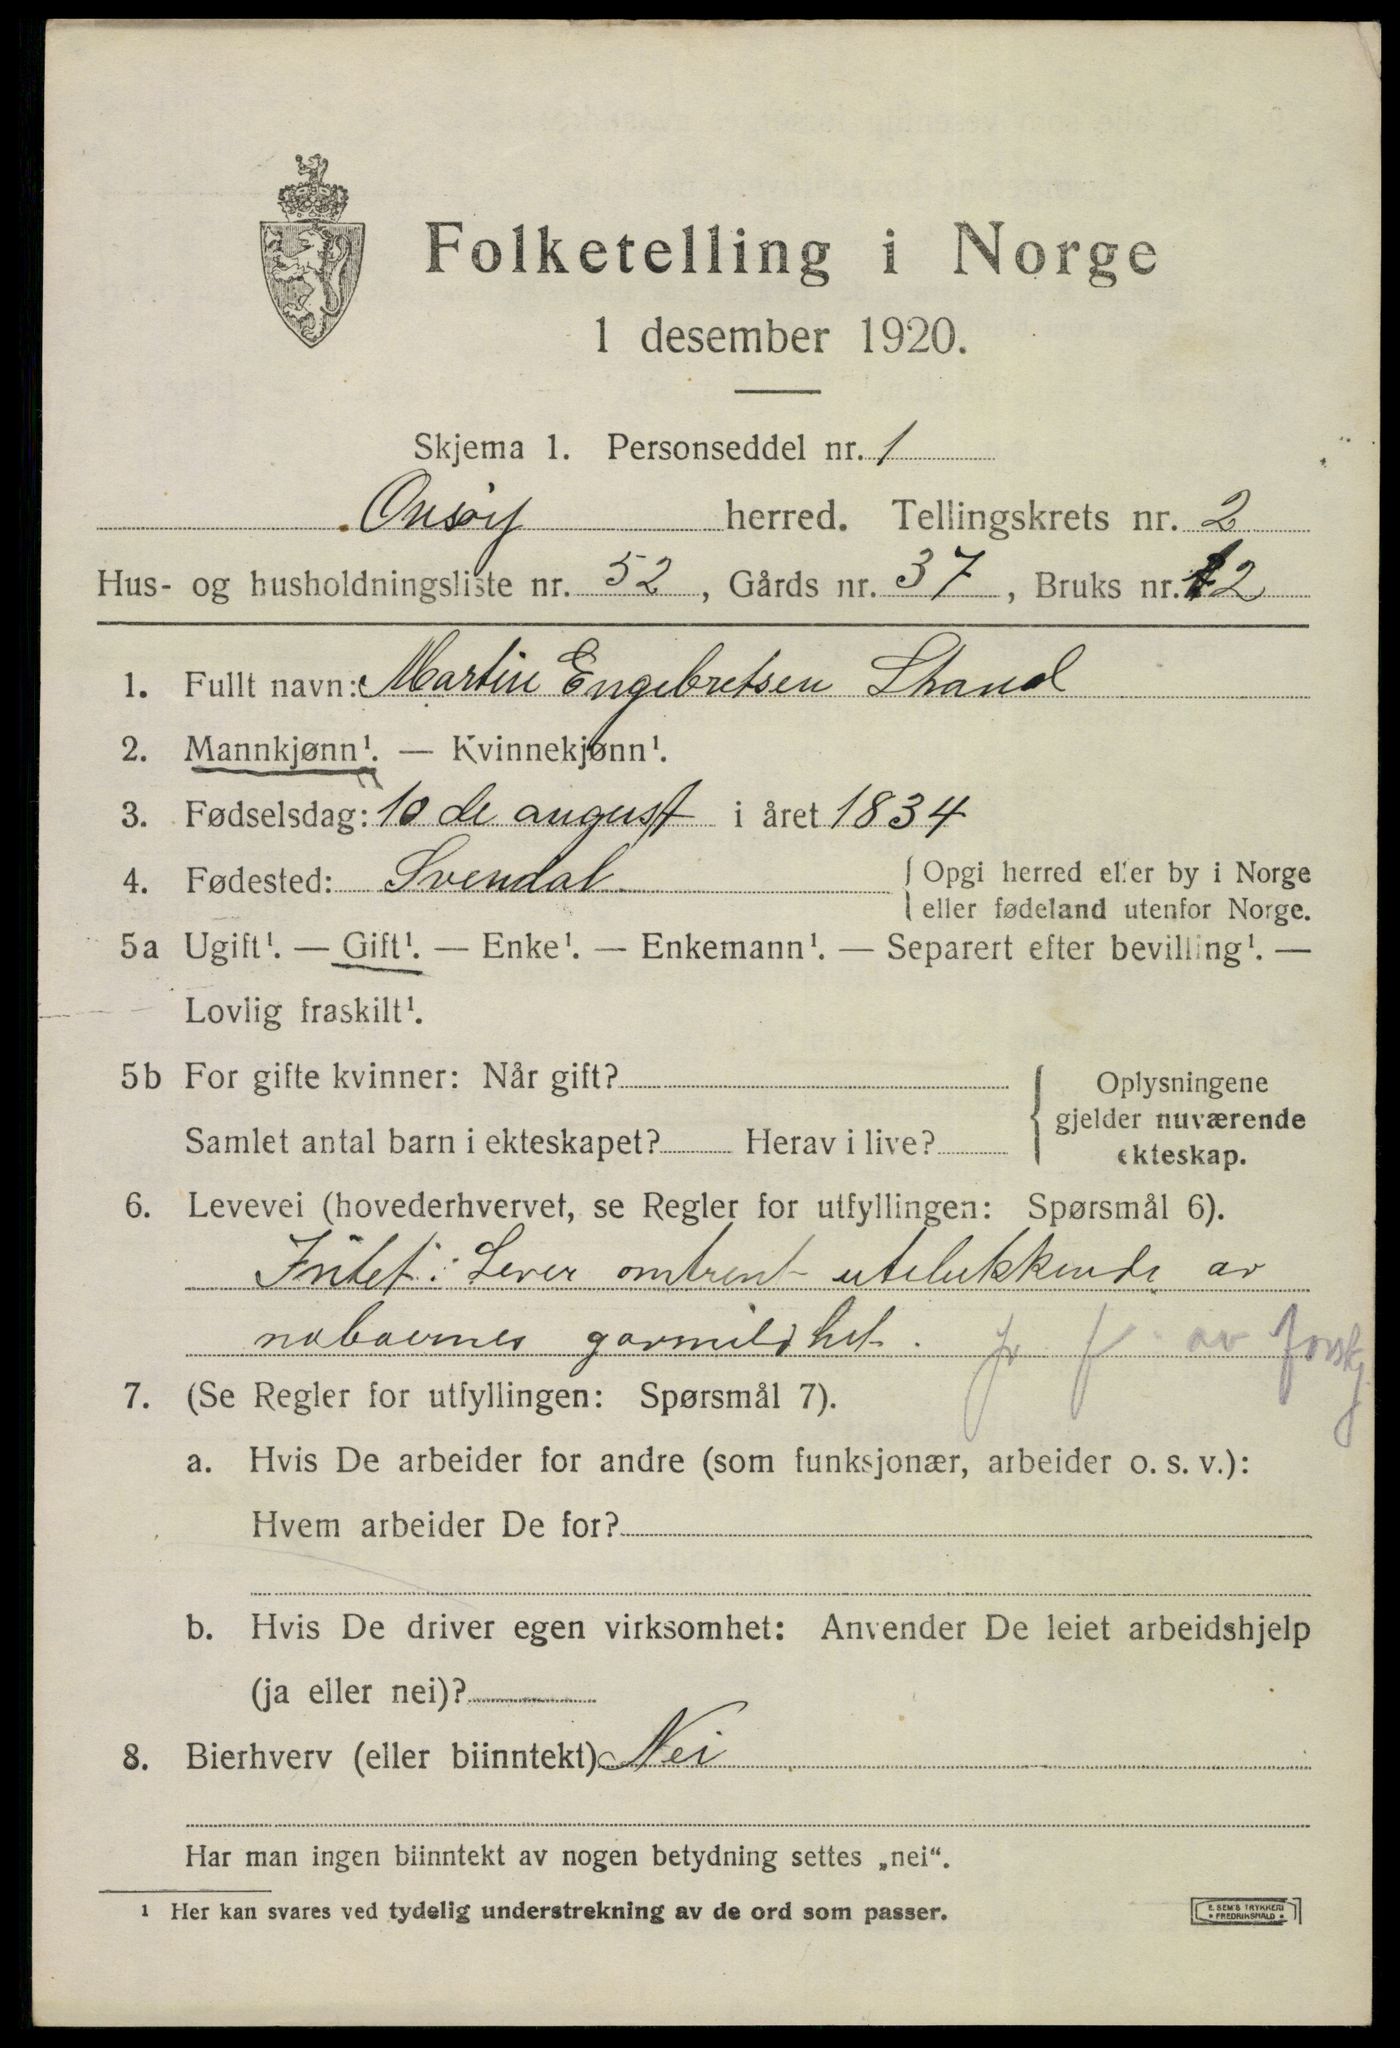 Folketelling i Norge
1 desember 1920.
Skjema 1. Personseddel nr. 1
Onsøy herred. Tellingskrets nr. 2
Hus- og husholdningsliste nr. 52, Gårds nr. 37, Bruks nr. 12
1. Fullt navn: Martin Engebretsen Strand
2. Mannkjønn¹. — Kvinnekjønn¹.
3. Fødselsdag: 10 de august i året 1834
4. Fødested: Svendal { Opgi herred eller by i Norge
eller fødeland utenfor Norge.
5a Ugift¹. — Gift¹. — Enke¹. — Enkemann¹. — Separert efter bevilling¹. —
Lovlig fraskilt¹.
5b For gifte kvinner: Når gift? { Oplysningene
gjelder nuværende
Samlet antal barn i ekteskapet? Herav i live?
ekteskap.
6. Levevei (hovederhvervet, se Regler for utfyllingen: Spørsmål 6).
Intet. Lever omtrent utelukkende av
naboernes gavmildhet. av forsk
7. (Se Regler for utfyllingen: Spørsmål 7).
a. Hvis De arbeider for andre (som funksjonær, arbeider o. s. v.):
Hvem arbeider De for?
b. Hvis De driver egen virksomhet: Anvender De leiet arbeidshjelp
(ja eller nei)?
8. Bierhverv (eller biinntekt) Nei
Har man ingen biinntekt av nogen betydning settes „nei“.
¹ Her kan svares ved tydelig understrekning av de ord som passer.
E. SEM'S TRYKKERI
• FREDRIKSHALD •